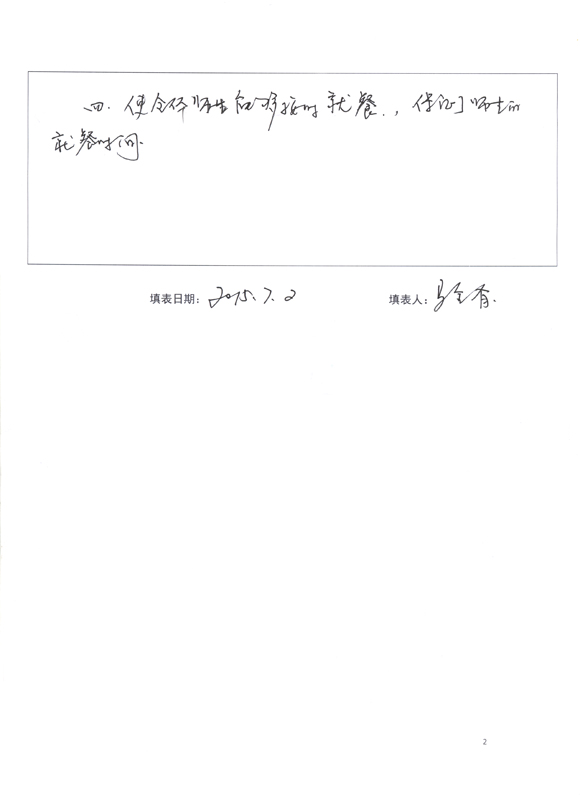 四.使全体师生能够按时就餐.,保证了师生的
就餐时间.
填表日期: 2015.7.2 填表人: 马全有.
2